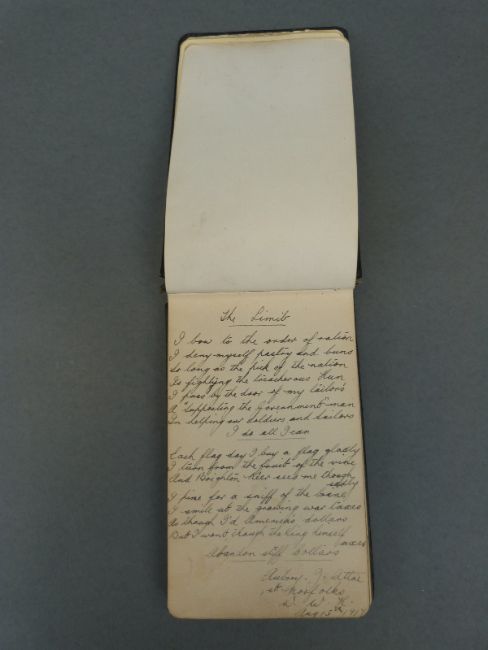 The Limit
I bow to the order of ration
I deny myself pastry and buns
So long as the pick of the nation
Is fighting the treacherous Hun
I pass by the door of my tailors
A "Supporting the Government" man
In helping our soldiers and sailors
I do all I can
Each flag day I buy a flag gladly
I turn from the fruit of the vine
And Brighton Pier sees me though
sadly
I pine for a sniff of the
I smile at the growing war taxes
As though I'd American dollars
But I won't though the King himself
axes
Abandon stiff collars
Aubrey
1st Norfolks
D. W. H.
Aug 15th 1917